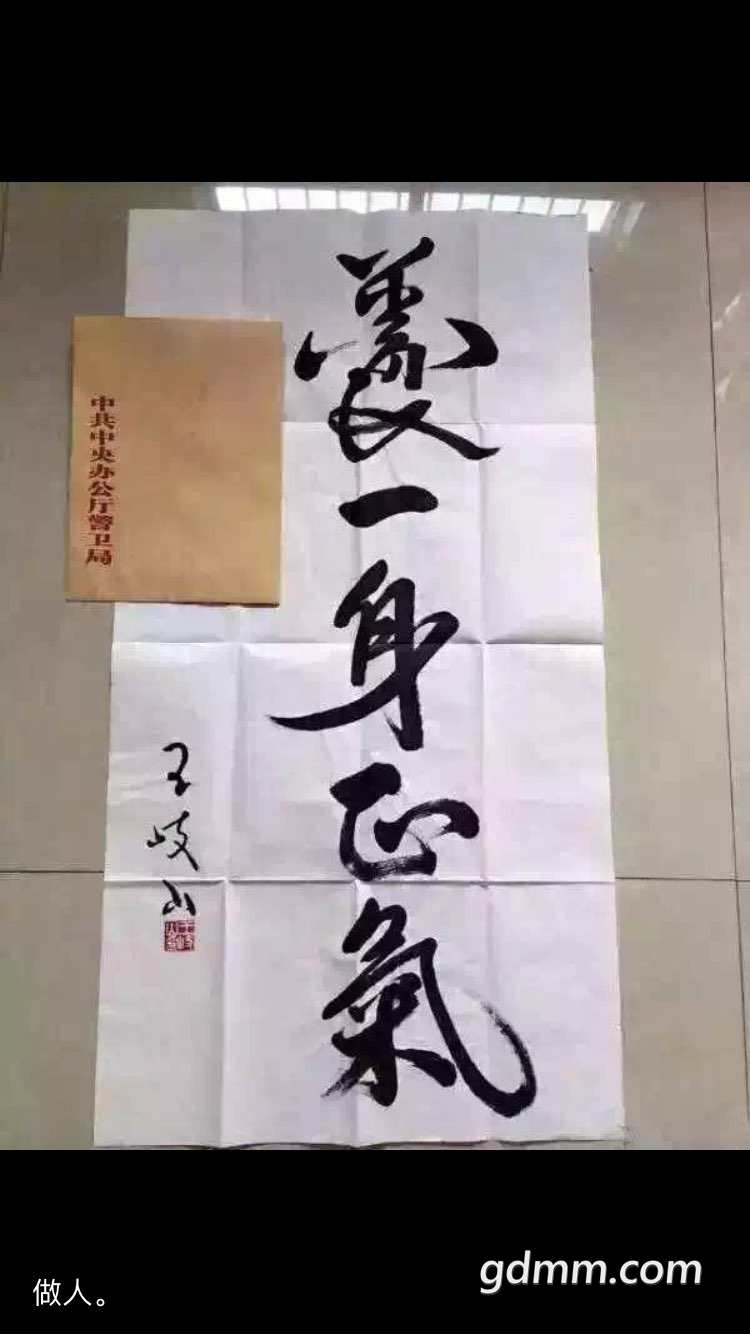 養一身正氣
王岐山
中共中央办公厅警卫局
做人。
gdmm.com